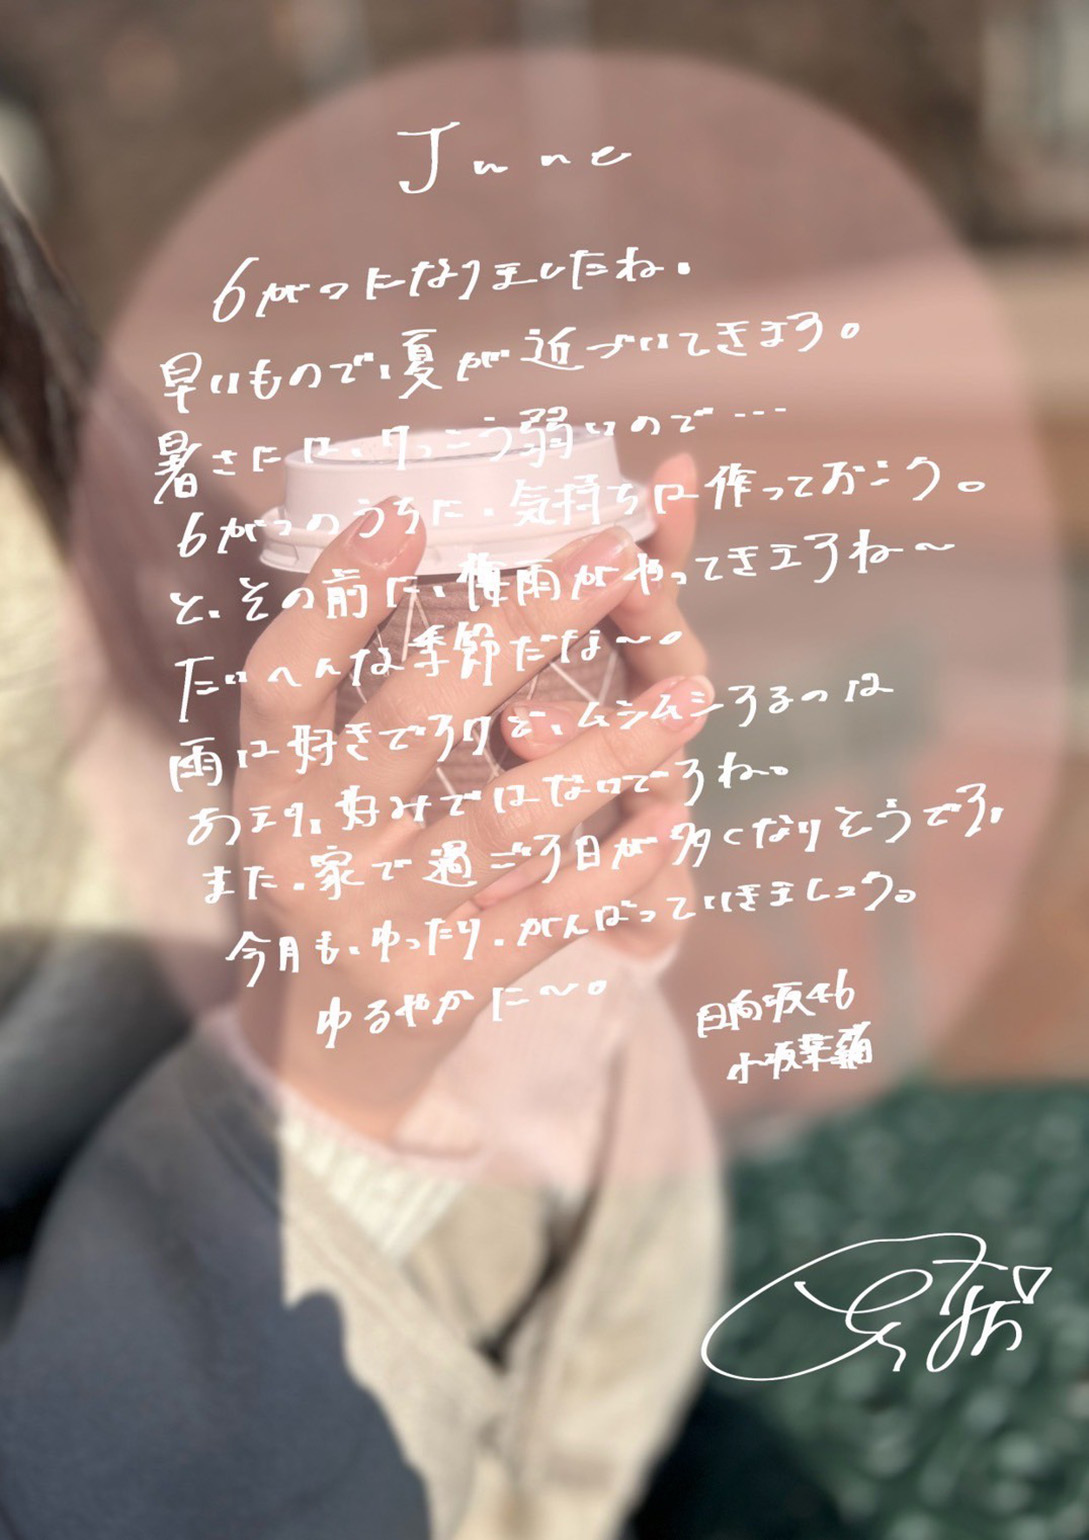 June
6がつになりましたね。
早いもので、夏が近づいてきます。
暑さには、けっこう弱いので…
6がつのうちに、気持ちは作っておこう。
と、その前に、梅雨がやってきますね〜
たいへんな季節だな〜。
雨は好きですけど、ムシムシするのは
あまり、好みではないですね。
また、家で過ごす日が多くなりそうです、
今月も、ゆったり、がんばっていきましょう。
ゆるやかに〜。
日向坂46
小坂菜緒